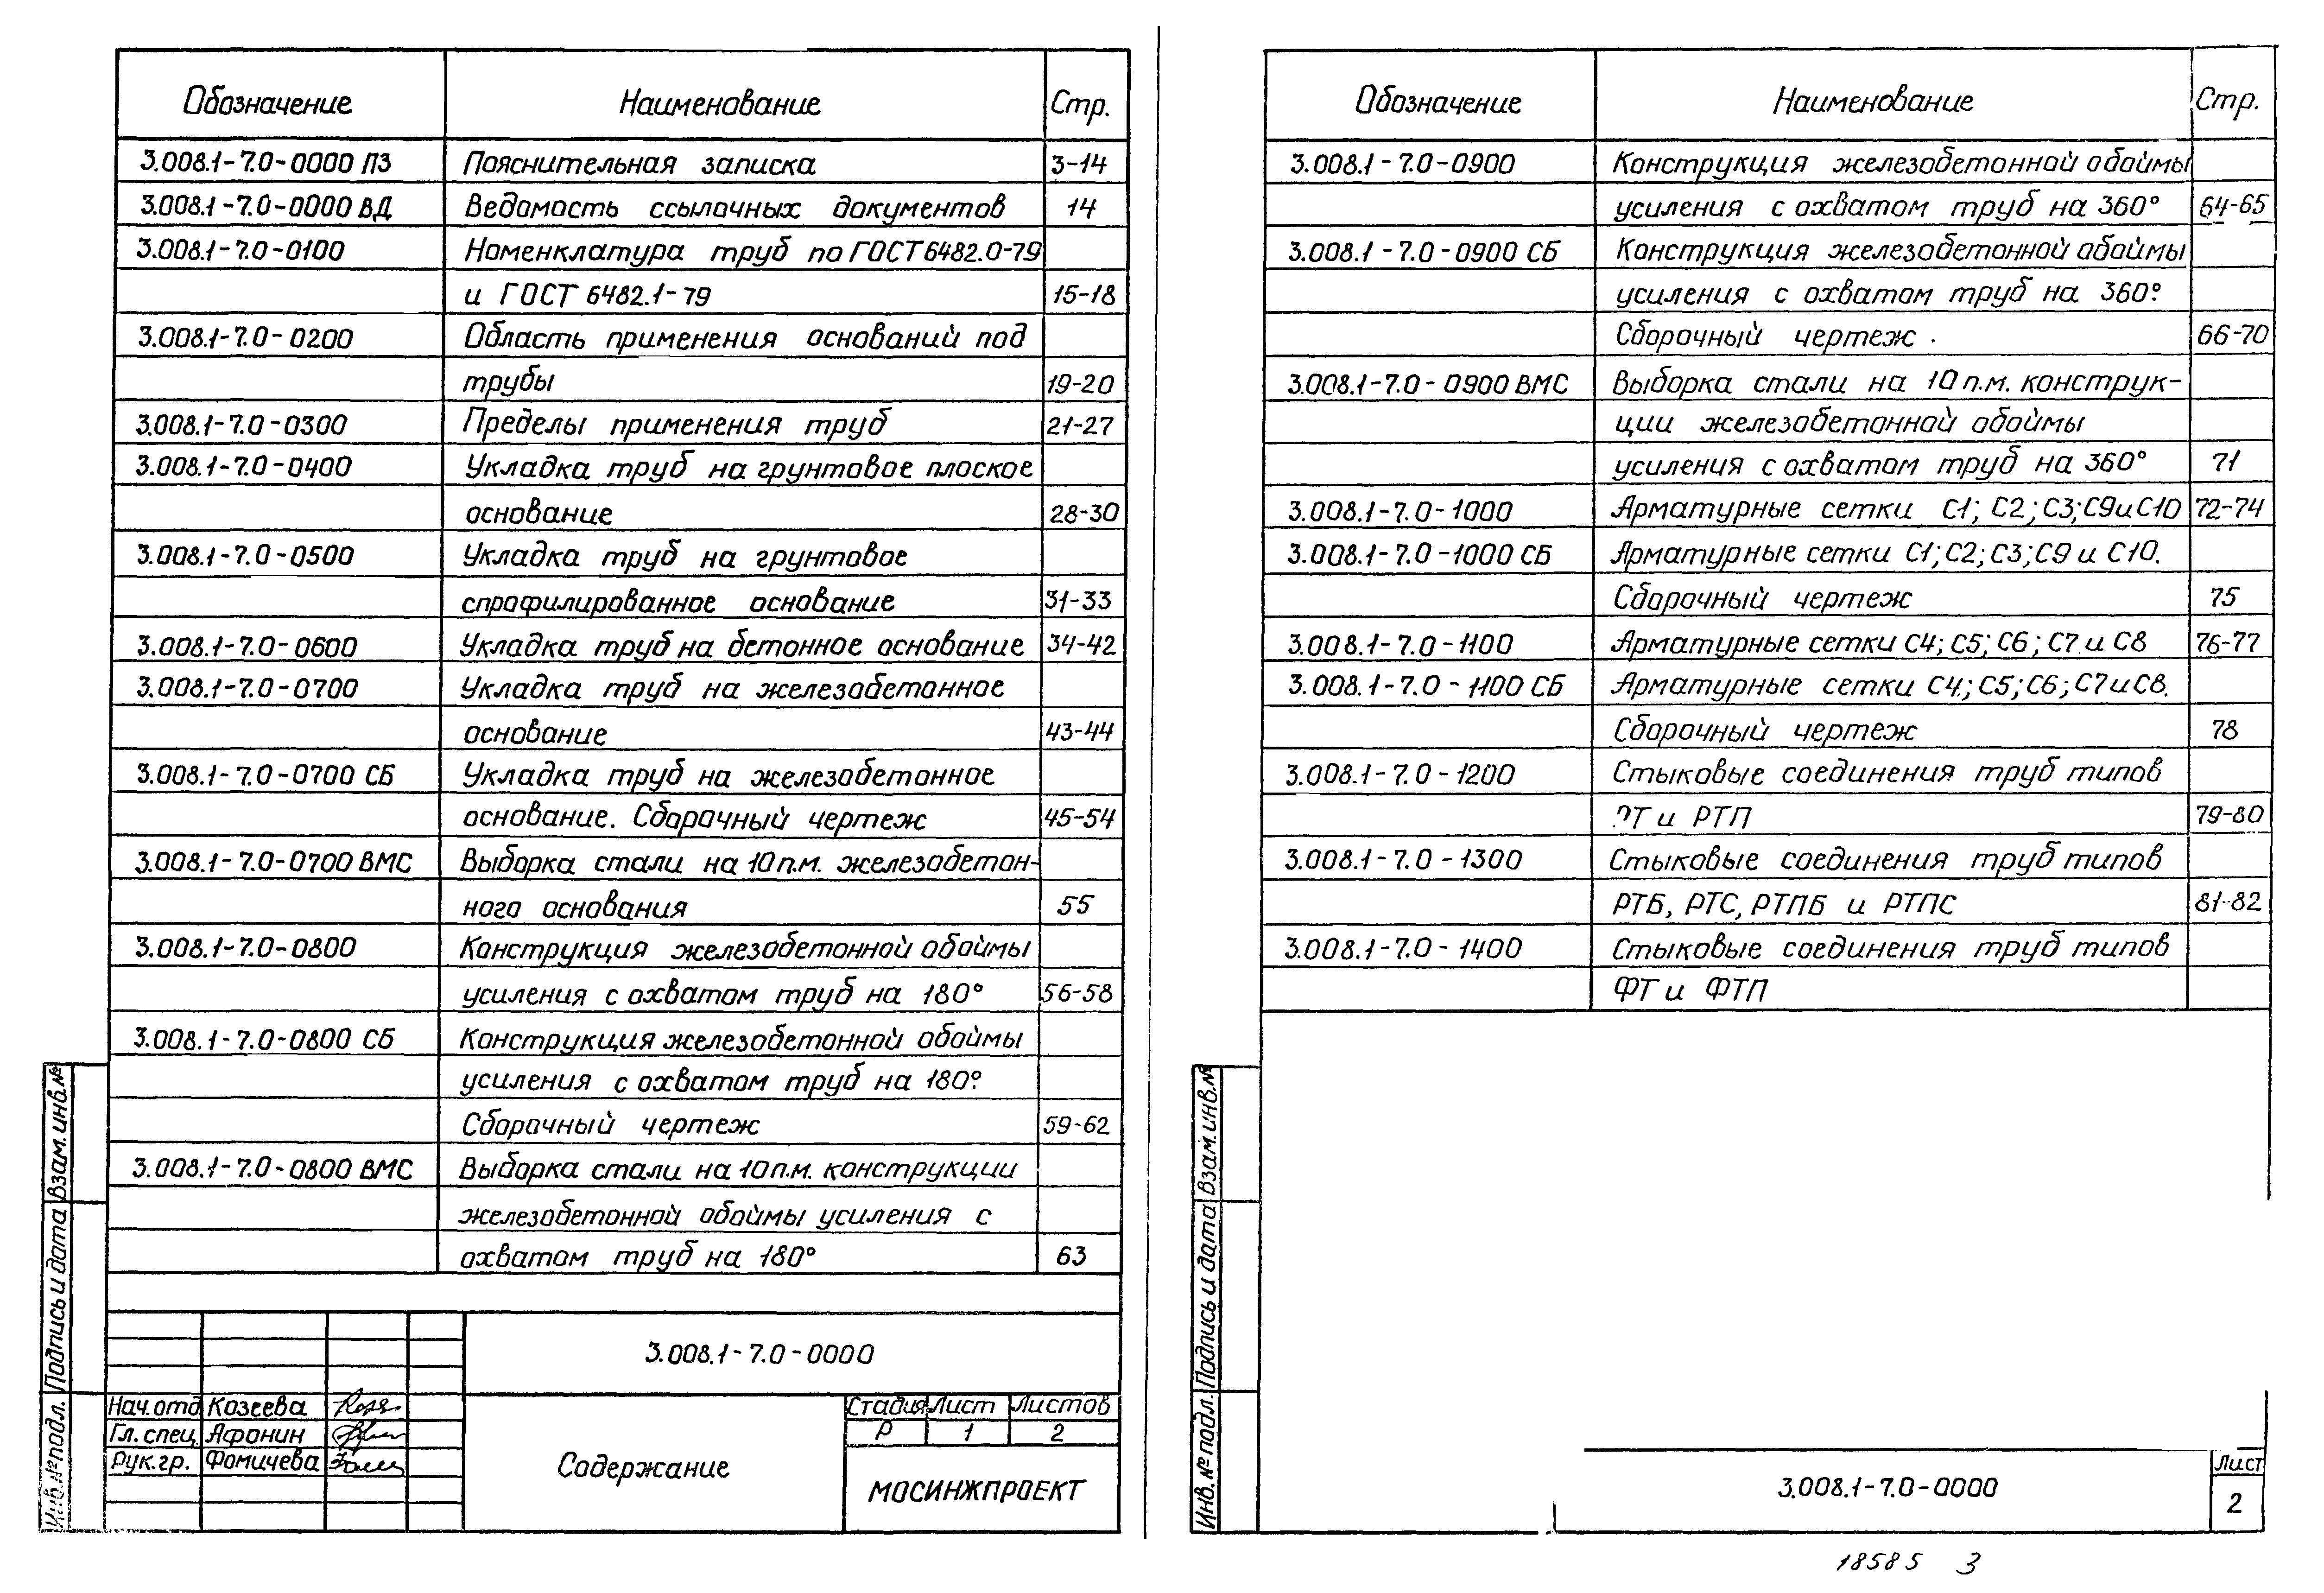 Обозначение Наименование Стр.
3.008.1-7.0-0000 ПЗ Пояснительная записка 3-14
3.008.1-7.0-0000 ВД Ведомость ссылочных документов 14
3.008.1-7.0-0100 Номенклатура труб по ГОСТ 6482.0-79
и ГОСТ 6482.1-79 15-18
3.008.1-7.0-0200 Область применения оснований под
трубы 19-20
3.008.1-7.0-0300 Пределы применения труб 21-27
3.008.1-7.0-0400 Укладка труб на грунтовое плоское
основание 28-30
3.008.1-7.0-0500 Укладка труб на грунтовое
спрофилированное основание 31-33
3.008.1-7.0-0600 Укладка труб на бетонное основание 34-42
3.008.1-7.0-0700 Укладка труб на железобетонное
основание 43-44
3.008.1-7.0-0700 СБ Укладка труб на железобетонное
основание. Сборочный чертеж 45-54
3.008.1-7.0-0700 ВМС Выборка стали на 10 п.м. железобетон-
ного основания 55
3.008.1-7.0-0800 Конструкция железобетонной обоймы
усиления с охватом труб на 180° 56-58
3.008.1-7.0-0800 СБ Конструкция железобетонной обоймы
усиления с охватом труб на 180°.
Сборочный чертеж 59-62
3.008.1-7.0-0800 ВМС Выборка стали на 10 п.м. конструкции
железобетонной обоймы усиления с
охватом труб на 180° 63
3.008.1-7.0-0000
Нач.отд. Козеева
Гл. спец. Афонин
Рук.гр. Фомичева
Содержание
Стадия Лист Листов
Р 1 2
МОСИНЖПРОЕКТ
Инв.№ подл. Подпись и дата Взам.инв.№
Обозначение Наименование Стр.
3.008.1-7.0-0900 Конструкция железобетонной обоймы
усиления с охватом труб на 360° 64-65
3.008.1-7.0-0900 СБ Конструкция железобетонной обоймы
усиления с охватом труб на 360°.
Сборочный чертеж. 66-70
3.008.1-7.0-0900 ВМС Выборка стали на 10 п.м. конструк-
ции железобетонной обоймы
усиления с охватом труб на 360° 71
3.008.1-7.0-1000 Арматурные сетки С1; С2; С3; С9 и С10 72-74
3.008.1-7.0-1000 СБ Арматурные сетки С1; С2; С3; С9 и С10.
Сборочный чертеж 75
3.008.1-7.0-1100 Арматурные сетки С4; С5; С6; С7 и С8 76-77
3.008.1-7.0-1100 СБ Арматурные сетки С4; С5; С6; С7 и С8.
Сборочный чертеж 78
3.008.1-7.0-1200 Стыковые соединения труб типов
РТ и РТП 79-80
3.008.1-7.0-1300 Стыковые соединения труб типов
РТБ, РТС, РТПБ и РТПС 81-82
3.008.1-7.0-1400 Стыковые соединения труб типов
ФТ и ФТП
Инв.№ подл. Подпись и дата Взам.инв.№
3.008.1-7.0-0000
Лист
2
18585 3